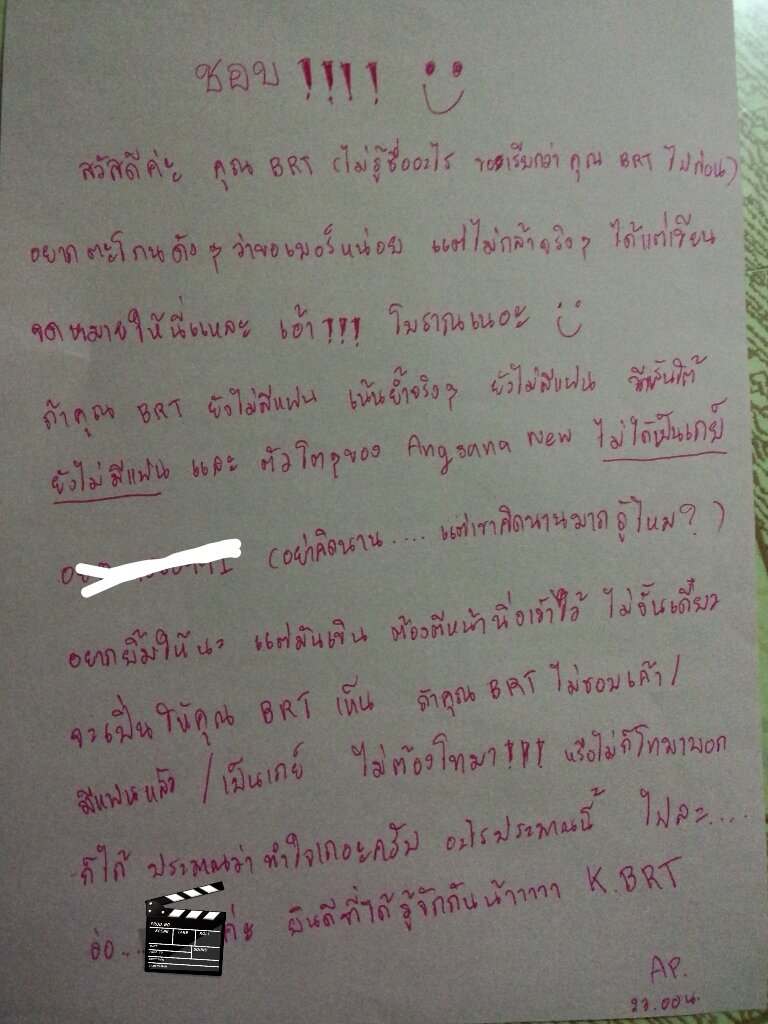 ชอบ !!!!
สวัสดีค่ะ คุณ BRT (ไม่รู้ชื่ออะไร ขอเรียกว่า คุณ BRT ไปก่อน)
อยากตะโกนดัง ๆ ว่าขอเบอร์หน่อย แต่ไม่กล้าจริง ๆ ได้แต่เขียน
จดหมายให้นี่แหละ เอ้า !!! โบราณเนอะ
ถ้าคุณ BRT ยังไม่มีแฟน เน้นย้ำจริง ๆ ยังไม่มีแฟน ขีดเส้นใต้
ยังไม่มีแฟน และ ตัวโตๆของ Angsana New ไม่ได้เป็นเกย์
(อย่าคิดนาน.... แต่เขาคิดนานมาก รู้ไหม?)
อยากยิ้มให้นะ แต่มันเขิน ต้องตีหน้านิ่งเข้าไว้ ไม่งั้นเดี๋ยว
จะเปิ่นให้คุณ BRT เห็น ถ้าคุณ BRT ไม่ชอบเค้า/
มีแฟนแล้ว /เป็นเกย์ ไม่ต้องโทมา !!! หรือไม่ก็โทมาบอก
ก็ได้ ประมาณว่า ทำใจเถอะครับ อะไรประมาณนี้ ไปละ....
อ่อ... ค่ะ ยินดีที่ได้รู้จักกันน้าาาาา K.BRT
AP.
23.00น.